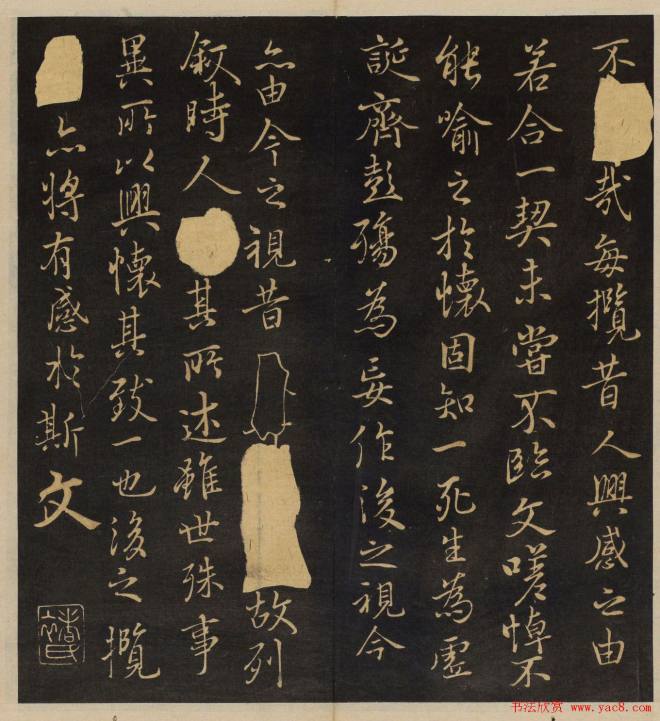 不哉每攬昔人興感之由
若合一契未嘗不臨文嗟悼不
能喻之於懷固知一死生為虛
誕齊彭殤為妄作後之視今
亦由今之視昔故列
叙時人其所述雖世殊事
異所以興懷其致一也後之攬
亦將有感於斯文
书法欣赏 www.yac8.com